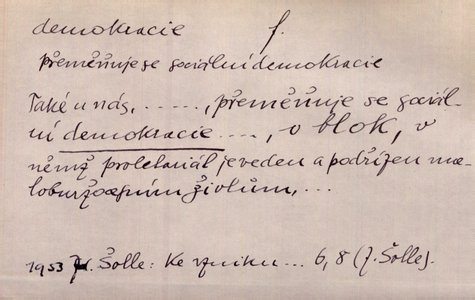 demokracie f.
přeměňuje se sociální demokracie
Také u nás, ......, přeměňuje se sociál-
ní demokracie ...., v blok, v
němž proletariát je veden a podřízen ma-
loburžoasním živlům, ...
1953 Šolle: Ke vzniku ... 6, 8 (Z. Šolle).